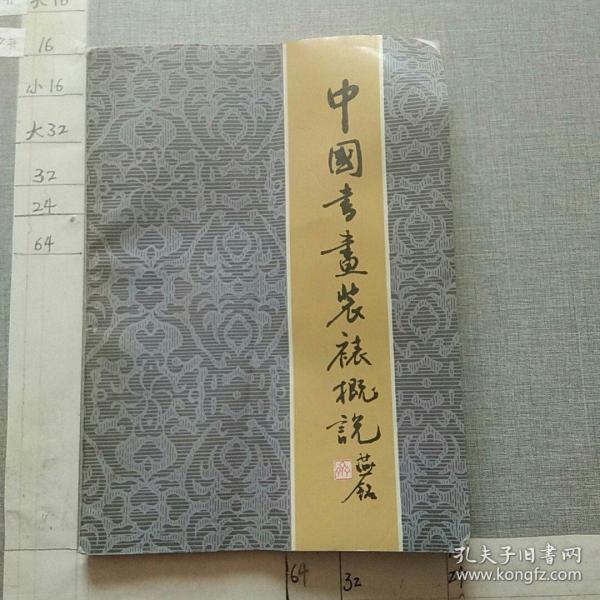 大16
16
小16
大32
32
24
64
中國書畫裝裱概說
燕銘
64
32
孔夫子旧书网
www.kongfz.com